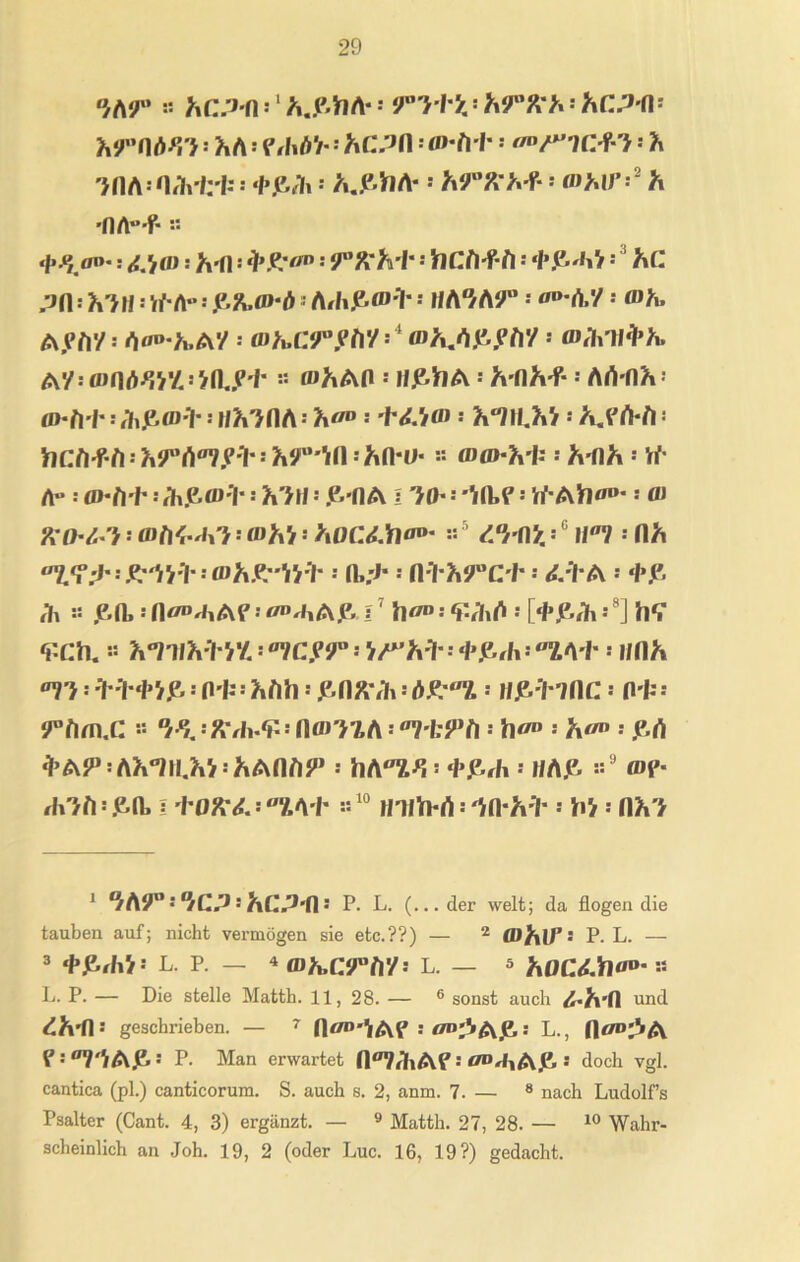 29
ዓለም ። አርጋብ፡¹ ኢይክሉ፡ ምንተኒ፡ አምጽኦ፡ አርጋብ፡
እምበዕዳን፡ እለ፡ የሐዕኑ፡ አርጋበ፡ ውስተ፡ መሥገርቶን፡ እ
ንበለ፡ በሕቲታ፡ ቀይሕ፡ ኢይክሉ፡ አምጽኦታ፡ ወእሆ፡² እ
ብለታ ።
ቀዳሙ፡ ፈነወ፡ አብ፡ ቅድመ፡ ምጽአተ፡ ክርስቶስ፡ ቀይሐነ፡³ አር
ጋበ፡ እንዘ፡ ኵሎ፡ ይጼውዕ፡ ለሐይወት፡ ዘለዓለም፡ ሙሴሃ፡ ወኢ
ልያስሃ፡ ሳሙኤልሃ፡ ወኤርምያስሃ፡⁴ ወኢሳይያስሃ፡ ወሕዝቅኤ
ልሃ፡ ወበዕዳነሂ፡ ነቢያተ ። ወአልቦ፡ ዘይክል፡ አብአተ፡ ለሰብእ፡
ውስተ፡ ሕይወት፡ ዘእንበለ፡ እመ፡ ተፈነወ፡ እግዚአነ፡ ኢየሱስ፡
ክርስቶስ፡ እምሰማያት፡ እምኀበ፡ አቡሁ ። ወውእቱ፡ አብአ፡ ኵ
ሎ፡ ውስተ፡ ሕይወት፡ እንዘ፡ ይብል፡ ንዑ፡ ኀቤየ፡ ኵልክሙ፡ ወ
ጽዑራን፡ ወስሩሓን፡ ወአነ፡ አዐርፈክሙ ።⁵ ረዓብኒ፡⁶ ዘማ፡ በእ
ማሂ፡ ድኅነት፡ ወአድኅነት፡ ቤታ፡ በትእምርተ፡ ፈትል፡ ቀይ
ሕ ። ይቤ፡ በመሓልየ፡ መሓልይ፡⁷ ከመ፡ ፍሕሶ፡ [ቀይሕ፡⁸] ከና
ፍርኪ ። እግዝእትነሂ፡ ማርያም፡ ነሥአት፡ ቀይሐ፡ ሜላተ፡ ዘበእ
ማን፡ ትትቀነይ፡ ቦቱ፡ እስከ፡ ይበጽሕ፡ ዕድሜ፡ ዘይትገበር፡ ቦቱ፡
ምስጢር ። ጎዲ፡ ጽሑፍ፡ በወንጌለ፡ ማቴዎስ፡ ከመ፡ እመ፡ ይሰ
ቅልዎ፡ ለእግዚአነ፡ አልበስዎ፡ ከለሜዳ፡ ቀይሐ፡ ዘለይ ።⁹ ወዮ
ሐንስ፡ ይቤ፡ ተዐጽፈ፡ ሜላተ ።¹⁰ ዘዝኩሰ፡ ኅቡእት፡ ከነ፡ በእን
¹ ዓለም፡ ዓርጋ፡ አርጋብ፡ P. L. (... der welt; da flogen die
tauben auf; nicht vermögen sie etc.??) — ² ወእሆ፡ P. L. —
³ ቀይሐነ፡ L. P. — ⁴ ወኤርምስሃ፡ L. — ⁵ አዐርፈክሙ ።
L. P. — Die stelle Matth. 11, 28. — ⁶ sonst auch ረአብ und
ሬአብ፡ geschrieben. — ⁷ በመኅልየ፡ መኃልይ፡ L., በመኃል
የ፡ ማኅልይ፡ P. Man erwartet በማሕልየ፡ መሓልይ፡ doch vgl.
cantica (pl.) canticorum. S. auch s. 2, anm. 7. — ⁸ nach Ludolf's
Psalter (Cant. 4, 3) ergänzt. — ⁹ Matth. 27, 28. — ¹⁰ Wahr-
scheinlich an Joh. 19, 2 (oder Luc. 16, 19?) gedacht.